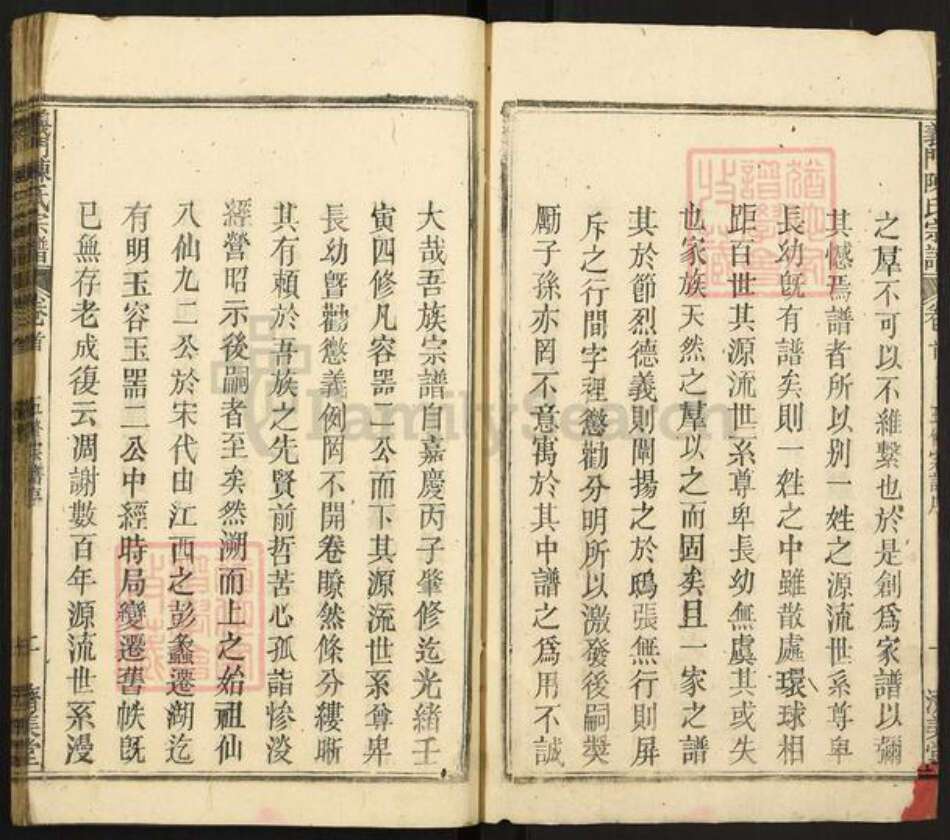 之羣不可以不維繫也於是創爲家譜以彌
其憾焉譜者所以别一姓之源流世系尊卑
長幼旣有譜矣則一姓之中雖散處環球相
距百世其源流世系尊卑長幼無虞其或失
也家族天然之羣以之而固矣且一家之譜
其於節烈德義則闡揚之於鴟張無行則屏
斥之行間字裡懲勸分明所以激發後嗣奬
勵子孫亦罔不意寓於其中譜之爲用不誠
大哉吾族宗譜自嘉慶丙子肇修迄光緒壬
寅四修凡容噐二公而下其源流世系尊卑
長幼曁勸懲義例罔不開卷瞭然條分縷晰
其有賴於吾族之先賢前哲苦心孤詣慘淡
經營昭示後嗣者至矣然溯而上之始祖仙
八仙九二公於宋代由江西之彭蠡遷湖迄
有明玉容玉噐二公中經時局變遷舊帙旣
已無存老成復云凋謝數百年源流世系漫
義門陳氏宗譜
卷首
五修宗譜序
二
濟美堂
FamilySearch